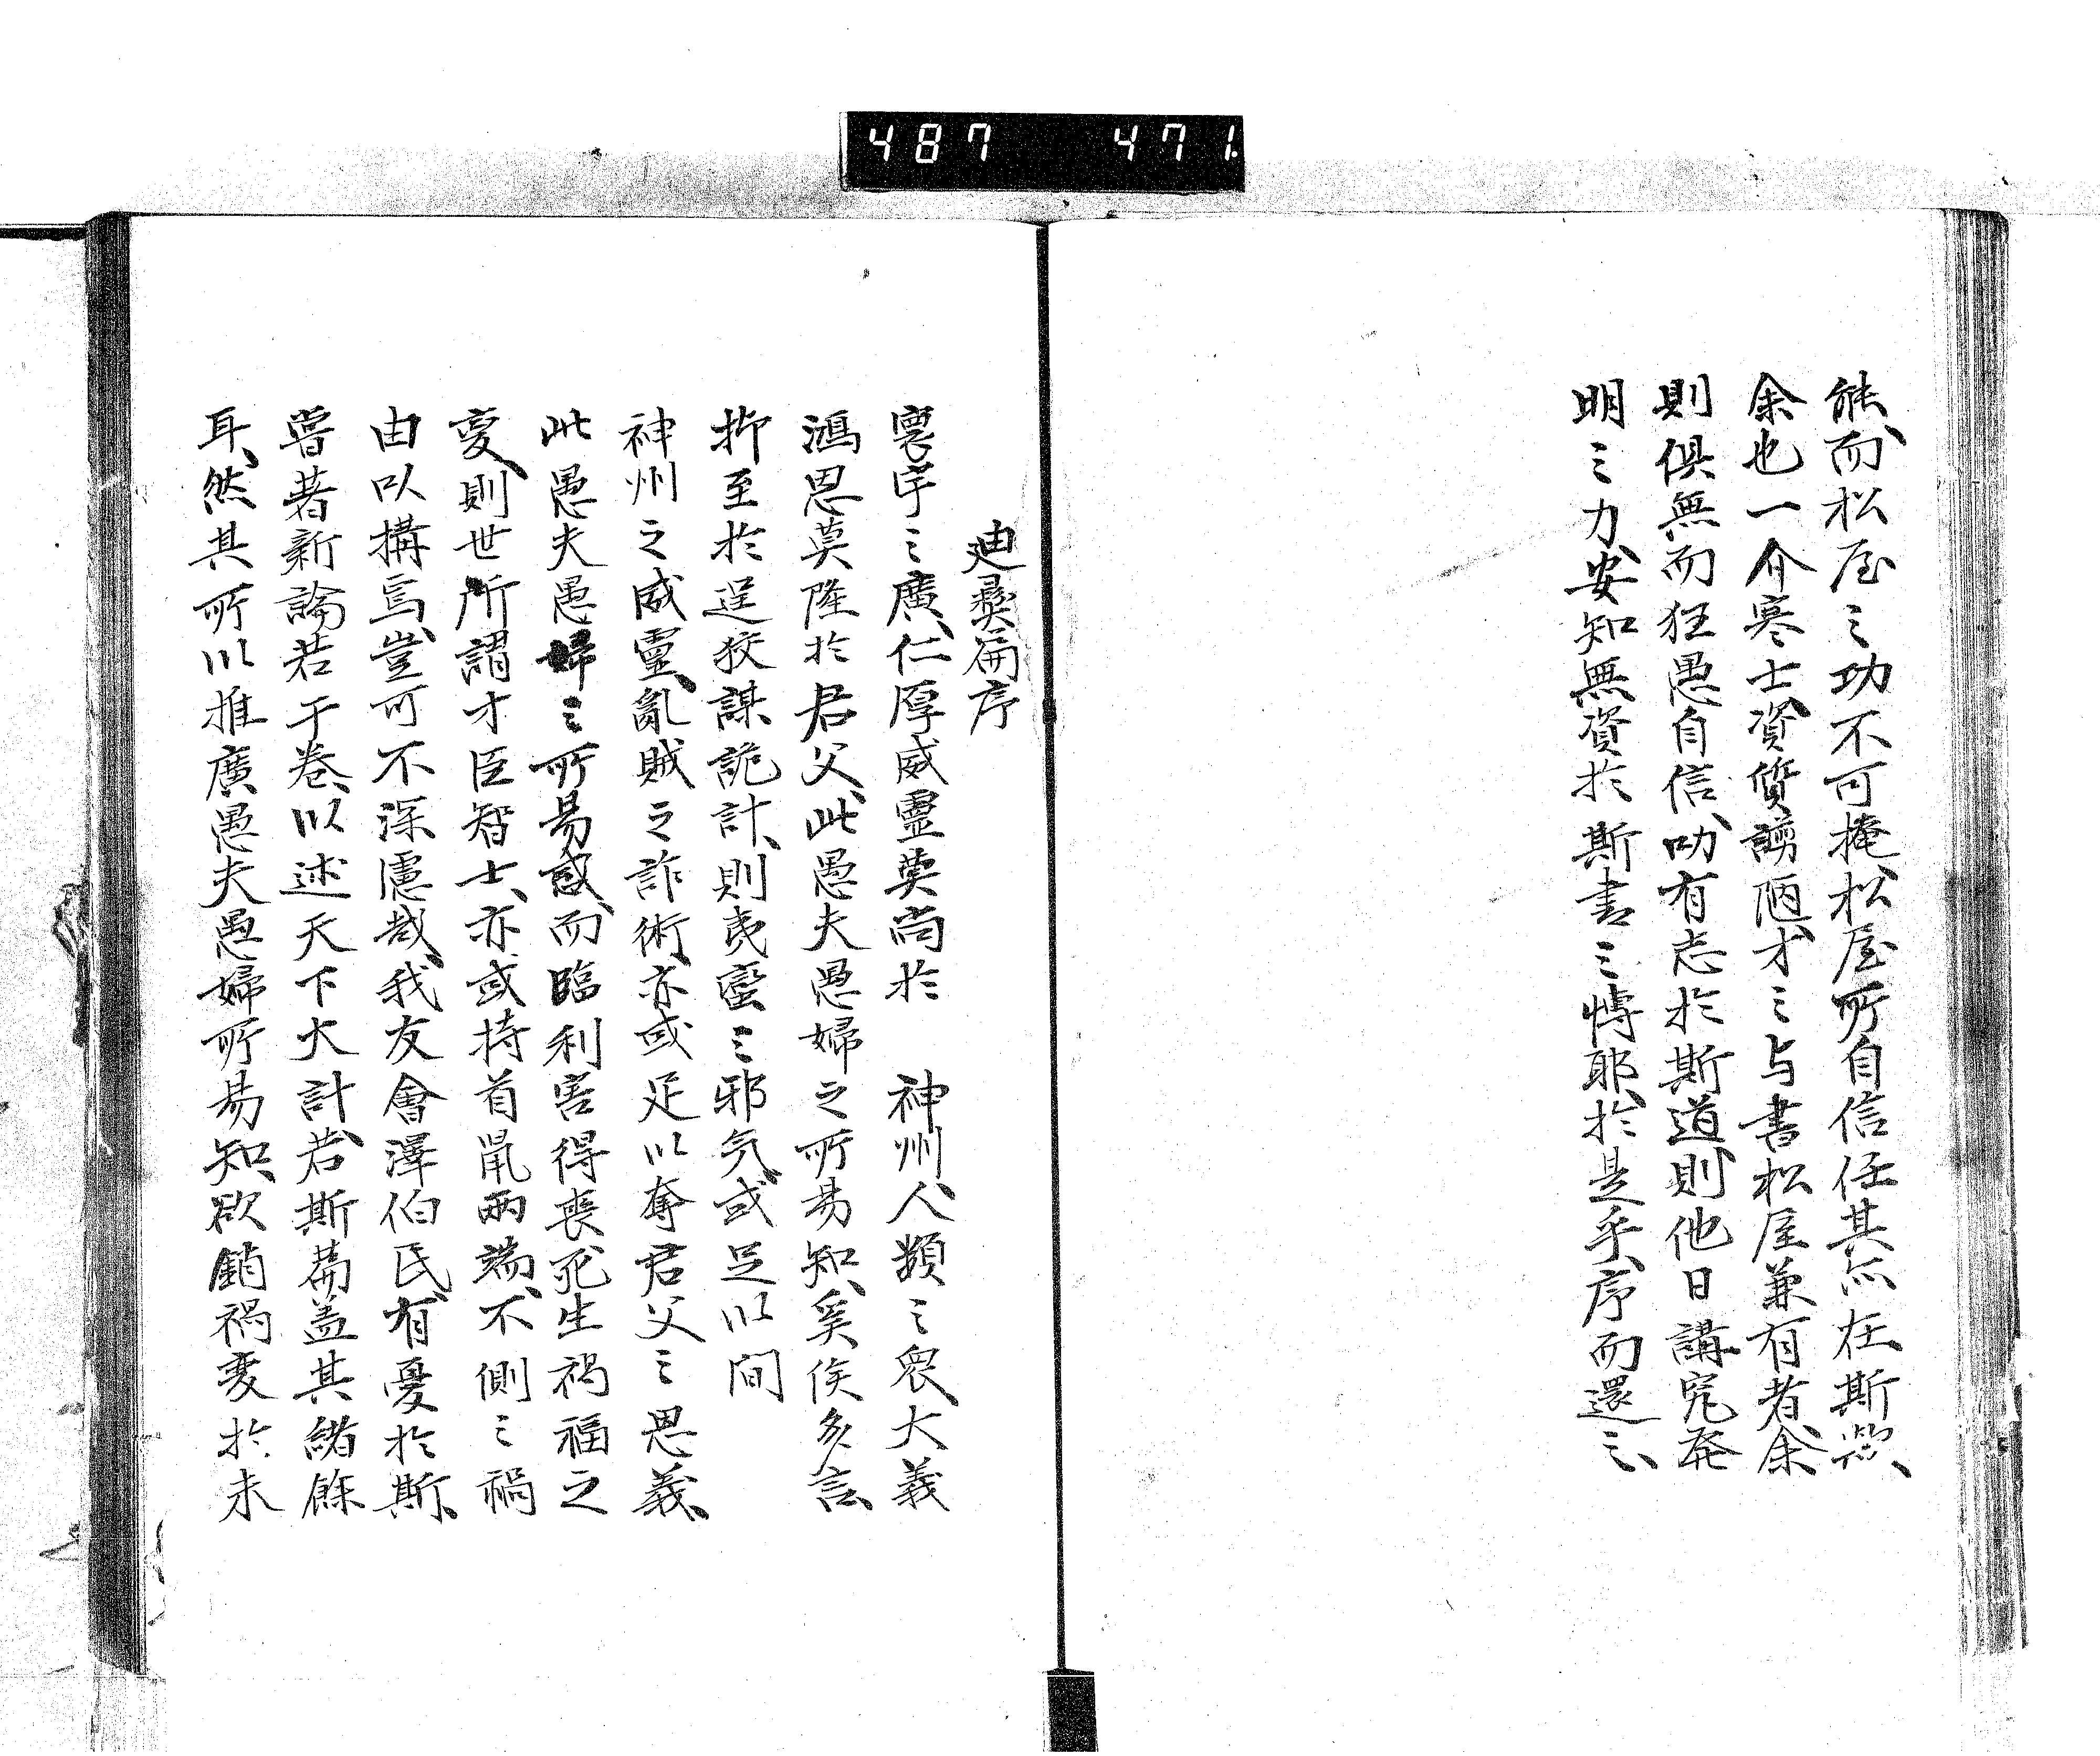 487 471.
能、而松屋之功不可掩、松屋所自信任其亦在斯歟、
余也一介寒士、資質謭陋、才之与書松屋兼有者、余
則倶無而狂愚自信、叨有志於斯道、則他日講究発
明之力、安知無資於斯書之博耶、於是乎、序而還之、
迪彝篇序
寰宇之廣、仁厚威靈莫尚於　神州、人類之衆、大義
鴻恩莫隆於君父、此愚夫愚婦之所易知、奚俟多言、
抑至於逞狡謀詭計、則夷蛮之邪気、或足以間
神州之威靈、亂賊之詐術、亦或足以奪君父之恩義、
此愚夫愚婦之所易惑、而臨利害得喪死生禍福之
変、則世所謂才臣智士、亦或持首鼠兩端、不測之禍
由以構焉、豈可不深慮哉、我友會澤伯民、有憂於斯、
嘗著新論若干巻、以述天下大計、若斯篇盖其緒餘
耳、然其所以推廣愚夫愚婦所易知、欲銷禍変於未